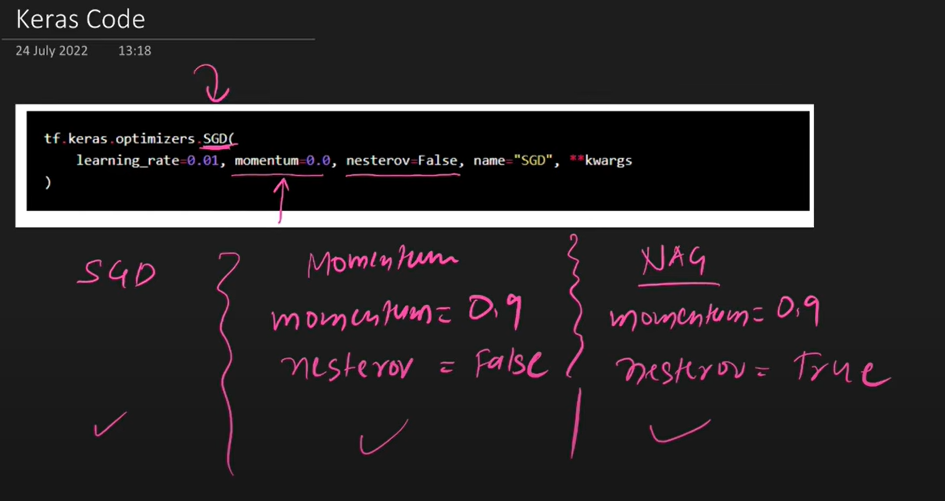 Keras Code
24 July 2022 13:18
tf.keras.optimizers.SGD(
    learning_rate=0.01, momentum=0.0, nesterov=False, name="SGD", **kwargs
)
SGD
Momentum
momentum = 0.9
nesterov = False
NAG
momentum = 0.9
nesterov = True